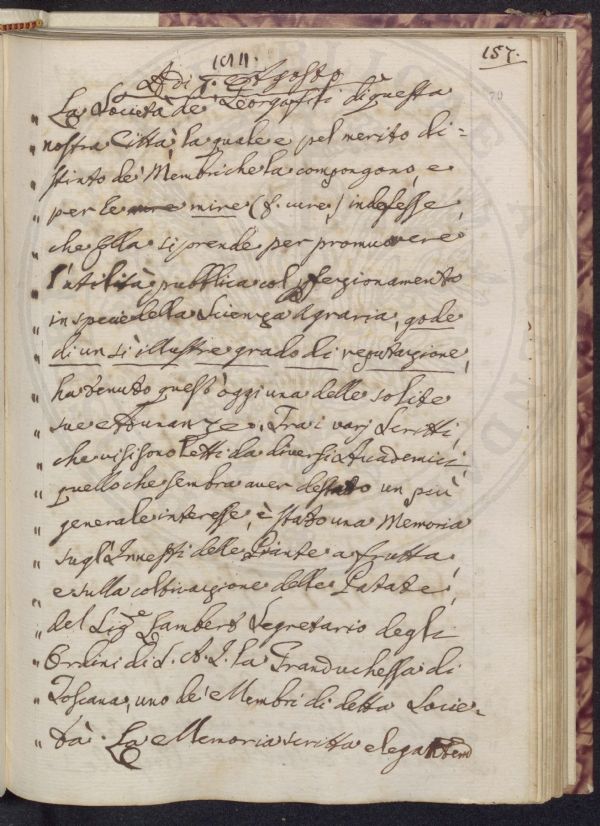 157.
1811.
Adi 7. Agosto
" La Società de' Georgofili di questa
" nostra Città, la quale e pel merito di=
" stinto de' Membri che la compongono, e
" per le mire (f. cure) indefesse,
" che Essa si prende per promuovere
" l'utilità pubblica col perfezionamento
" in specie della Scienza Agraria, gode
" di un sì illustre grado di reputazione,
" ha tenuto quest'oggi una delle solite
" sue Adunanze. Tra i varj Scritti,
" che vi si sono Letti da diversi Accademici,
" quello che sembra aver destato un più
" generale interesse, è stato una Memoria
" sugl'Innesti delle Piante a frutta,
" e sulla coltivazione delle Patate,
" del Sig.e Lambert Segretario degli
" Ordini di S. A. I. la Granduchessa di
" Toscana, uno de' Membri di detta Socie-
" tà. La Memoria scritta elegantem